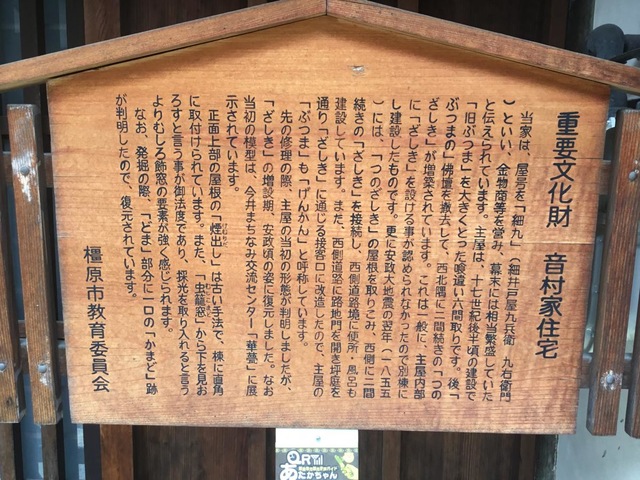 重要文化財 音村家住宅
当家は、屋号を「細九」（細井戸屋九兵衛 九右衛門
）といい、金物商等を営み、幕末には相当繁盛していた
と伝えられています。主屋は、十七世紀後半頃の建設で
「旧ぶつま」を大きくとった喰違い六間取りです。後「
ぶつまの」佛壇を撤去して、西北隅に二間続きの「つの
ざしき」が増築されています。これは一般に、主屋内部
に「ざしき」を設ける事が認められなかったので別棟に
し建設したものです。更に安政大地震の翌年（一八五五
）には、「つのざしき」の屋根を取りこみ、西側に二間
続きの「ざしき」を接続し、西側道路境に便所・風呂も
建設しています。また、西側道路に路地門を開き坪庭を
通り「ざしき」に通じる接客口に改造したので、主屋の
「ぶつま」も「げんかん」と呼称しています。
先の修理の際、主屋の当初の形態が判明しましたが、
「ざしき」の増設期、安政頃の姿に復元しました。なお
当初の模型は、今井まちなみ交流センター「華甍」に展
示されています。
正面上部の屋根の「煙出し」は古い手法で、棟に直角
に取付けられています。また、「虫籠窓」から下を見お
ろすと言う事が御法度であり、採光を取り入れると言う
よりむしろ飾窓の要素が強く感じられます。
なお、発掘の際、「どま」部分に一口の「かまど」跡
が判明したので、復元されています。
橿原市教育委員会
QR
あたかちゃん